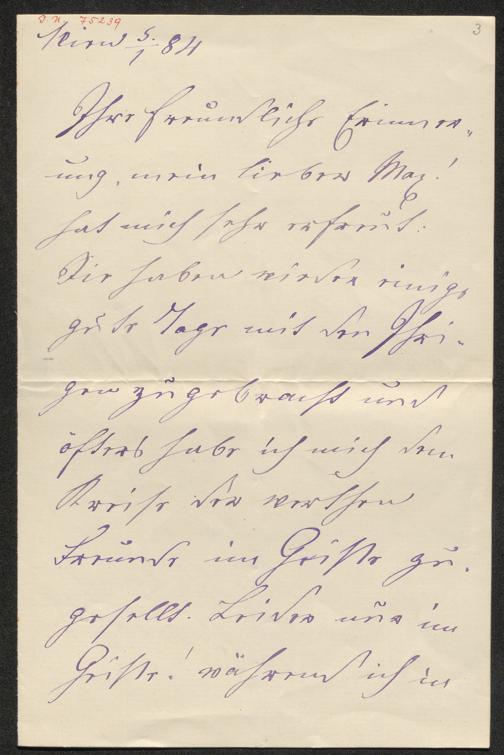 I. N. 75239
3
Wien 5./1 84
Ihre freundliche Erinner-
ung, mein lieber Max!
hat mich sehr erfreut.
Sie haben wieder einige
gute Tage mit den Ihri-
gen zugebracht und
öfters habe ich mich dem
Kreise der werthen
Freunde im Geiste zu-
gesellt. Leider nur im
Geiste! während ich in